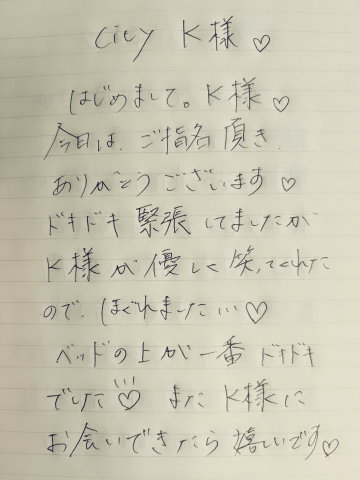 City K様♡
はじめまして。K様♡
今日は、ご指名頂き、
ありがとうございます♡
ドキドキ緊張してましたが
K様が優しく笑ってくれた
ので、ほぐれました…♡
ベッドの上が一番ドキドキ
でした♡ またK様に
お会いできたら嬉しいです♡